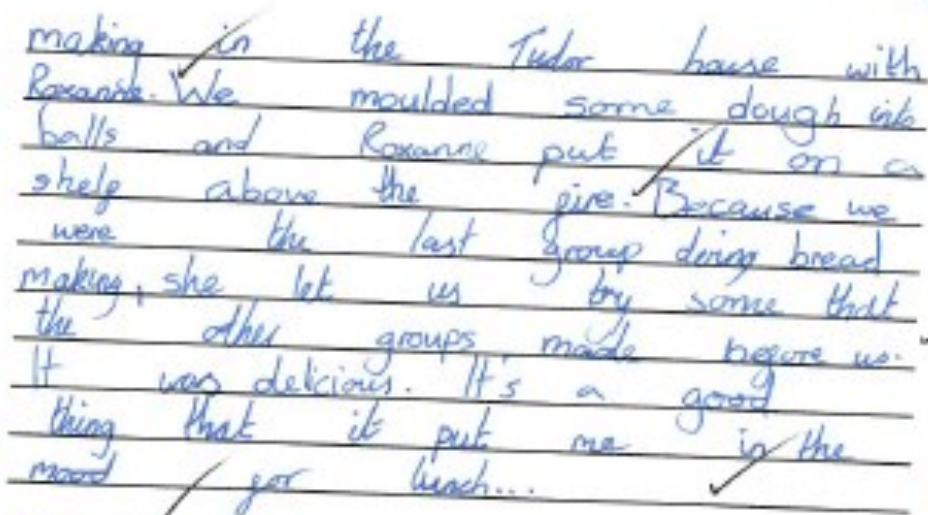 making in the Tudor house with
Roxanne. We moulded some dough into
balls and Roxanne put it on a
shelf above the fire. Because we
were the last group doing bread
making, she let us try some that
the other groups made before us.
It was delicious. It's a good
thing that it put me in the
mood for lunch...